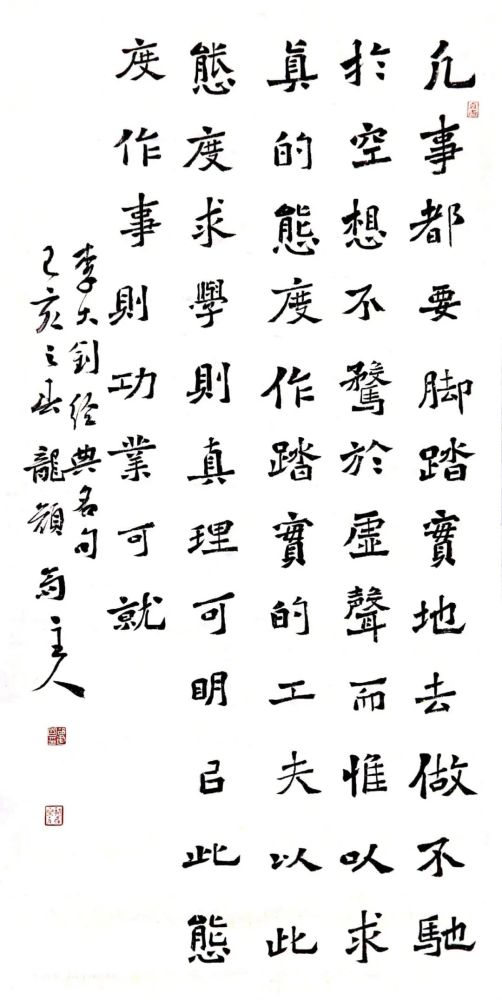 凡事都要脚踏實地去做不馳
於空想不騖於虛聲而惟以求
眞的態度作踏實的工夫以此
態度求學則真理可明㠯此態
度作事則功業可就
李大釗經典名句
己亥之春龍顏主人